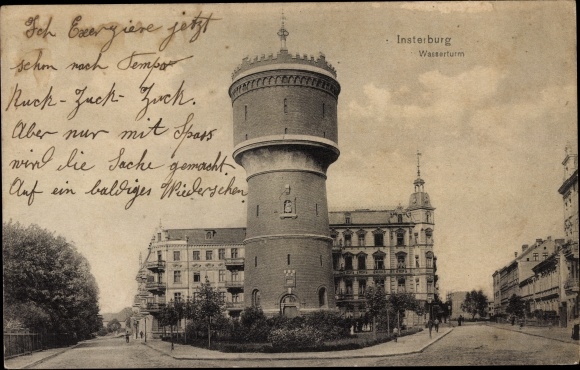 Ich Exerziere jetzt
schon nach Tempo
Ruck-Zuck-Zuck.
Aber nur mit Spass
wird die Sache gemacht.
Auf ein baldiges Wiedersehen.
Insterburg
Wasserturm